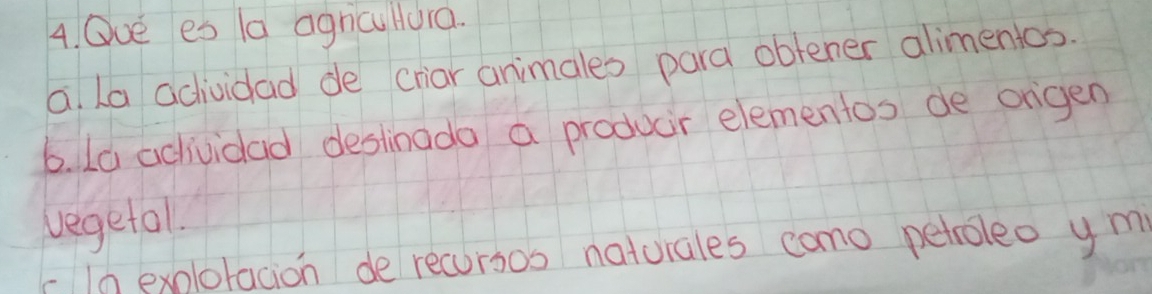 4. Qué es la agricultura.
a. La actividad de criar animales para obtener alimentos.
b. La actividad destinada a producir elementos de origen
vegetal.
c la explotación de recursos naturales como petróleo y mi